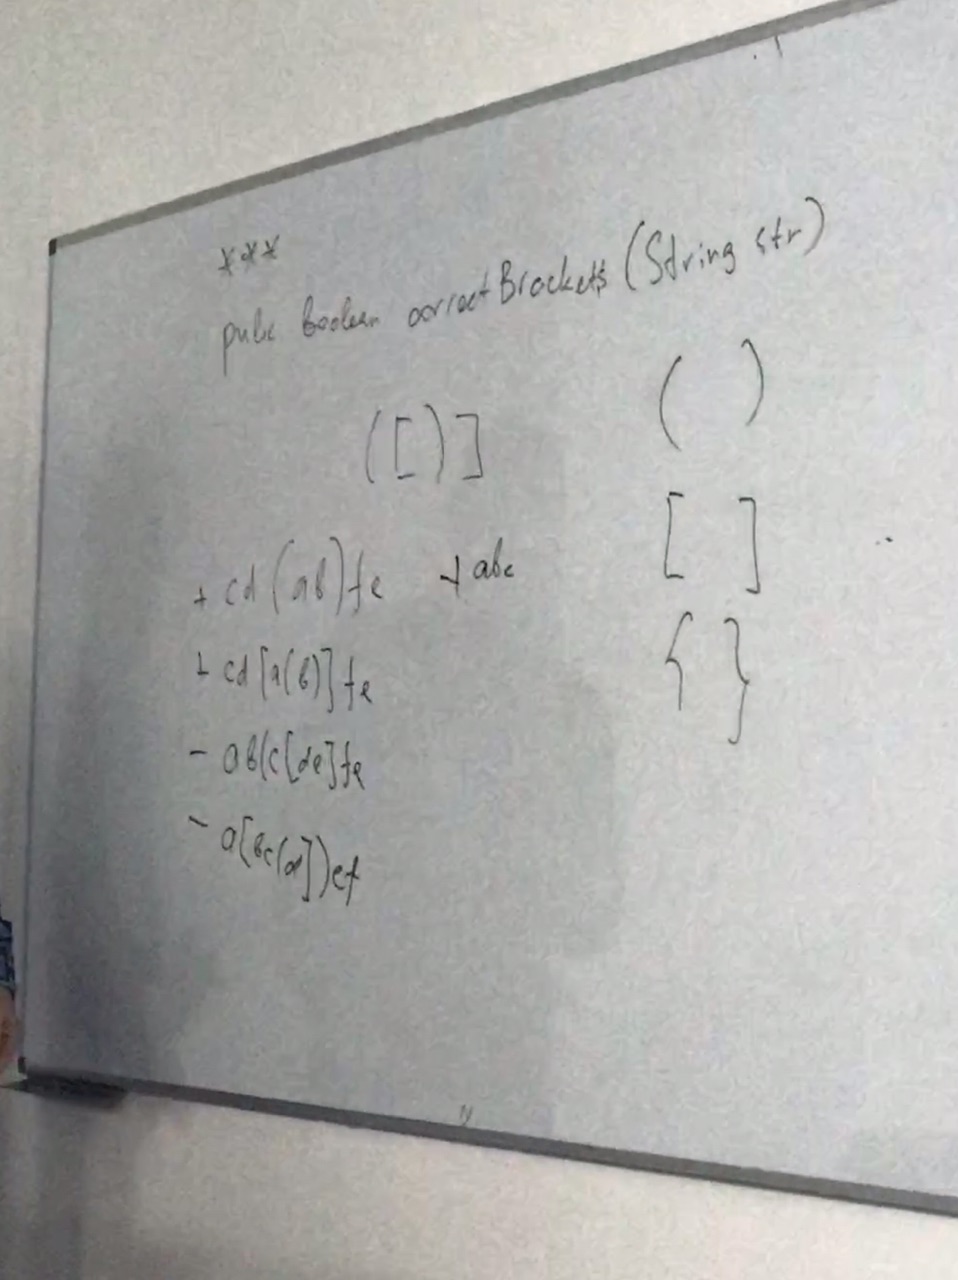 ***
public boolean correctBrackets (String str)
( )
([)]
[ ]
+ cd(ab)fe + abc
+ cd[a(b)]fe
{ }
- ab(c[de]fe
- a[bc(d])ef